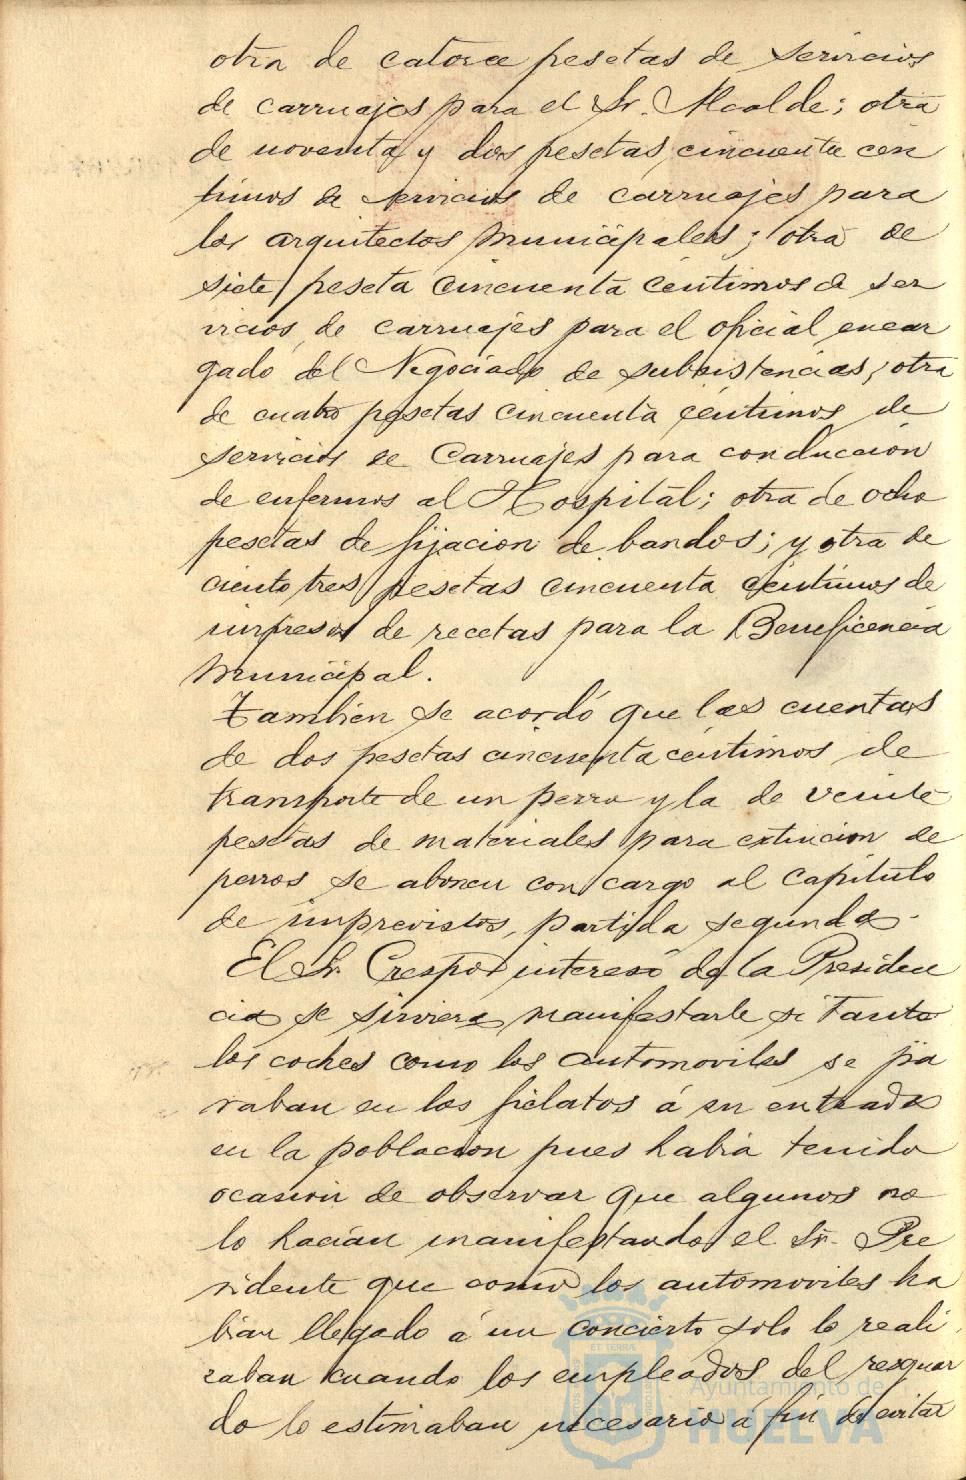 otra de catorce pesetas de servicios
de carruajes para el Sr. Alcalde; otra
de noventa y dos pesetas cincuenta cen
timos de servicios de carruajes para
los arquitectos municipales; otra de
siete peseta cincuenta centimos de ser
vicios de carruajes para el oficial encar
gado del Negociado de subsistencias; otra
de cuatro pesetas cincuenta centimos de
servicios de Carruajes para conduccion
de enfermos al Hospital; otra de ocho
pesetas de fijacion de bandos; y otra de
ciento tres pesetas cincuenta centimos de
impresos de recetas para la Beneficencia
Municipal.
Tambien se acordó que las cuentas
de dos pesetas cincuenta centimos de
transporte de un perro y la de veinte
pesetas de materiales para extincion de
perros se abonen con cargo al Capitulo
de imprevistos, partida segunda.
El Sr. Crespo interesó de la Presiden
cia se sirviera manifestarle si tanto
los coches como los automoviles se pa
raban en los fielatos á su entrada
en la poblacion pues habia tenido
ocasion de observar que algunos no
lo hacian manifestando el Sr. Pre
sidente que como los automoviles ha
bian llegado á un concierto solo lo reali
zaban cuando los empleados del resguar
do lo estimaban necesario á fin de evitar
ET TERRÆ
Ayuntamiento de
HUELVA